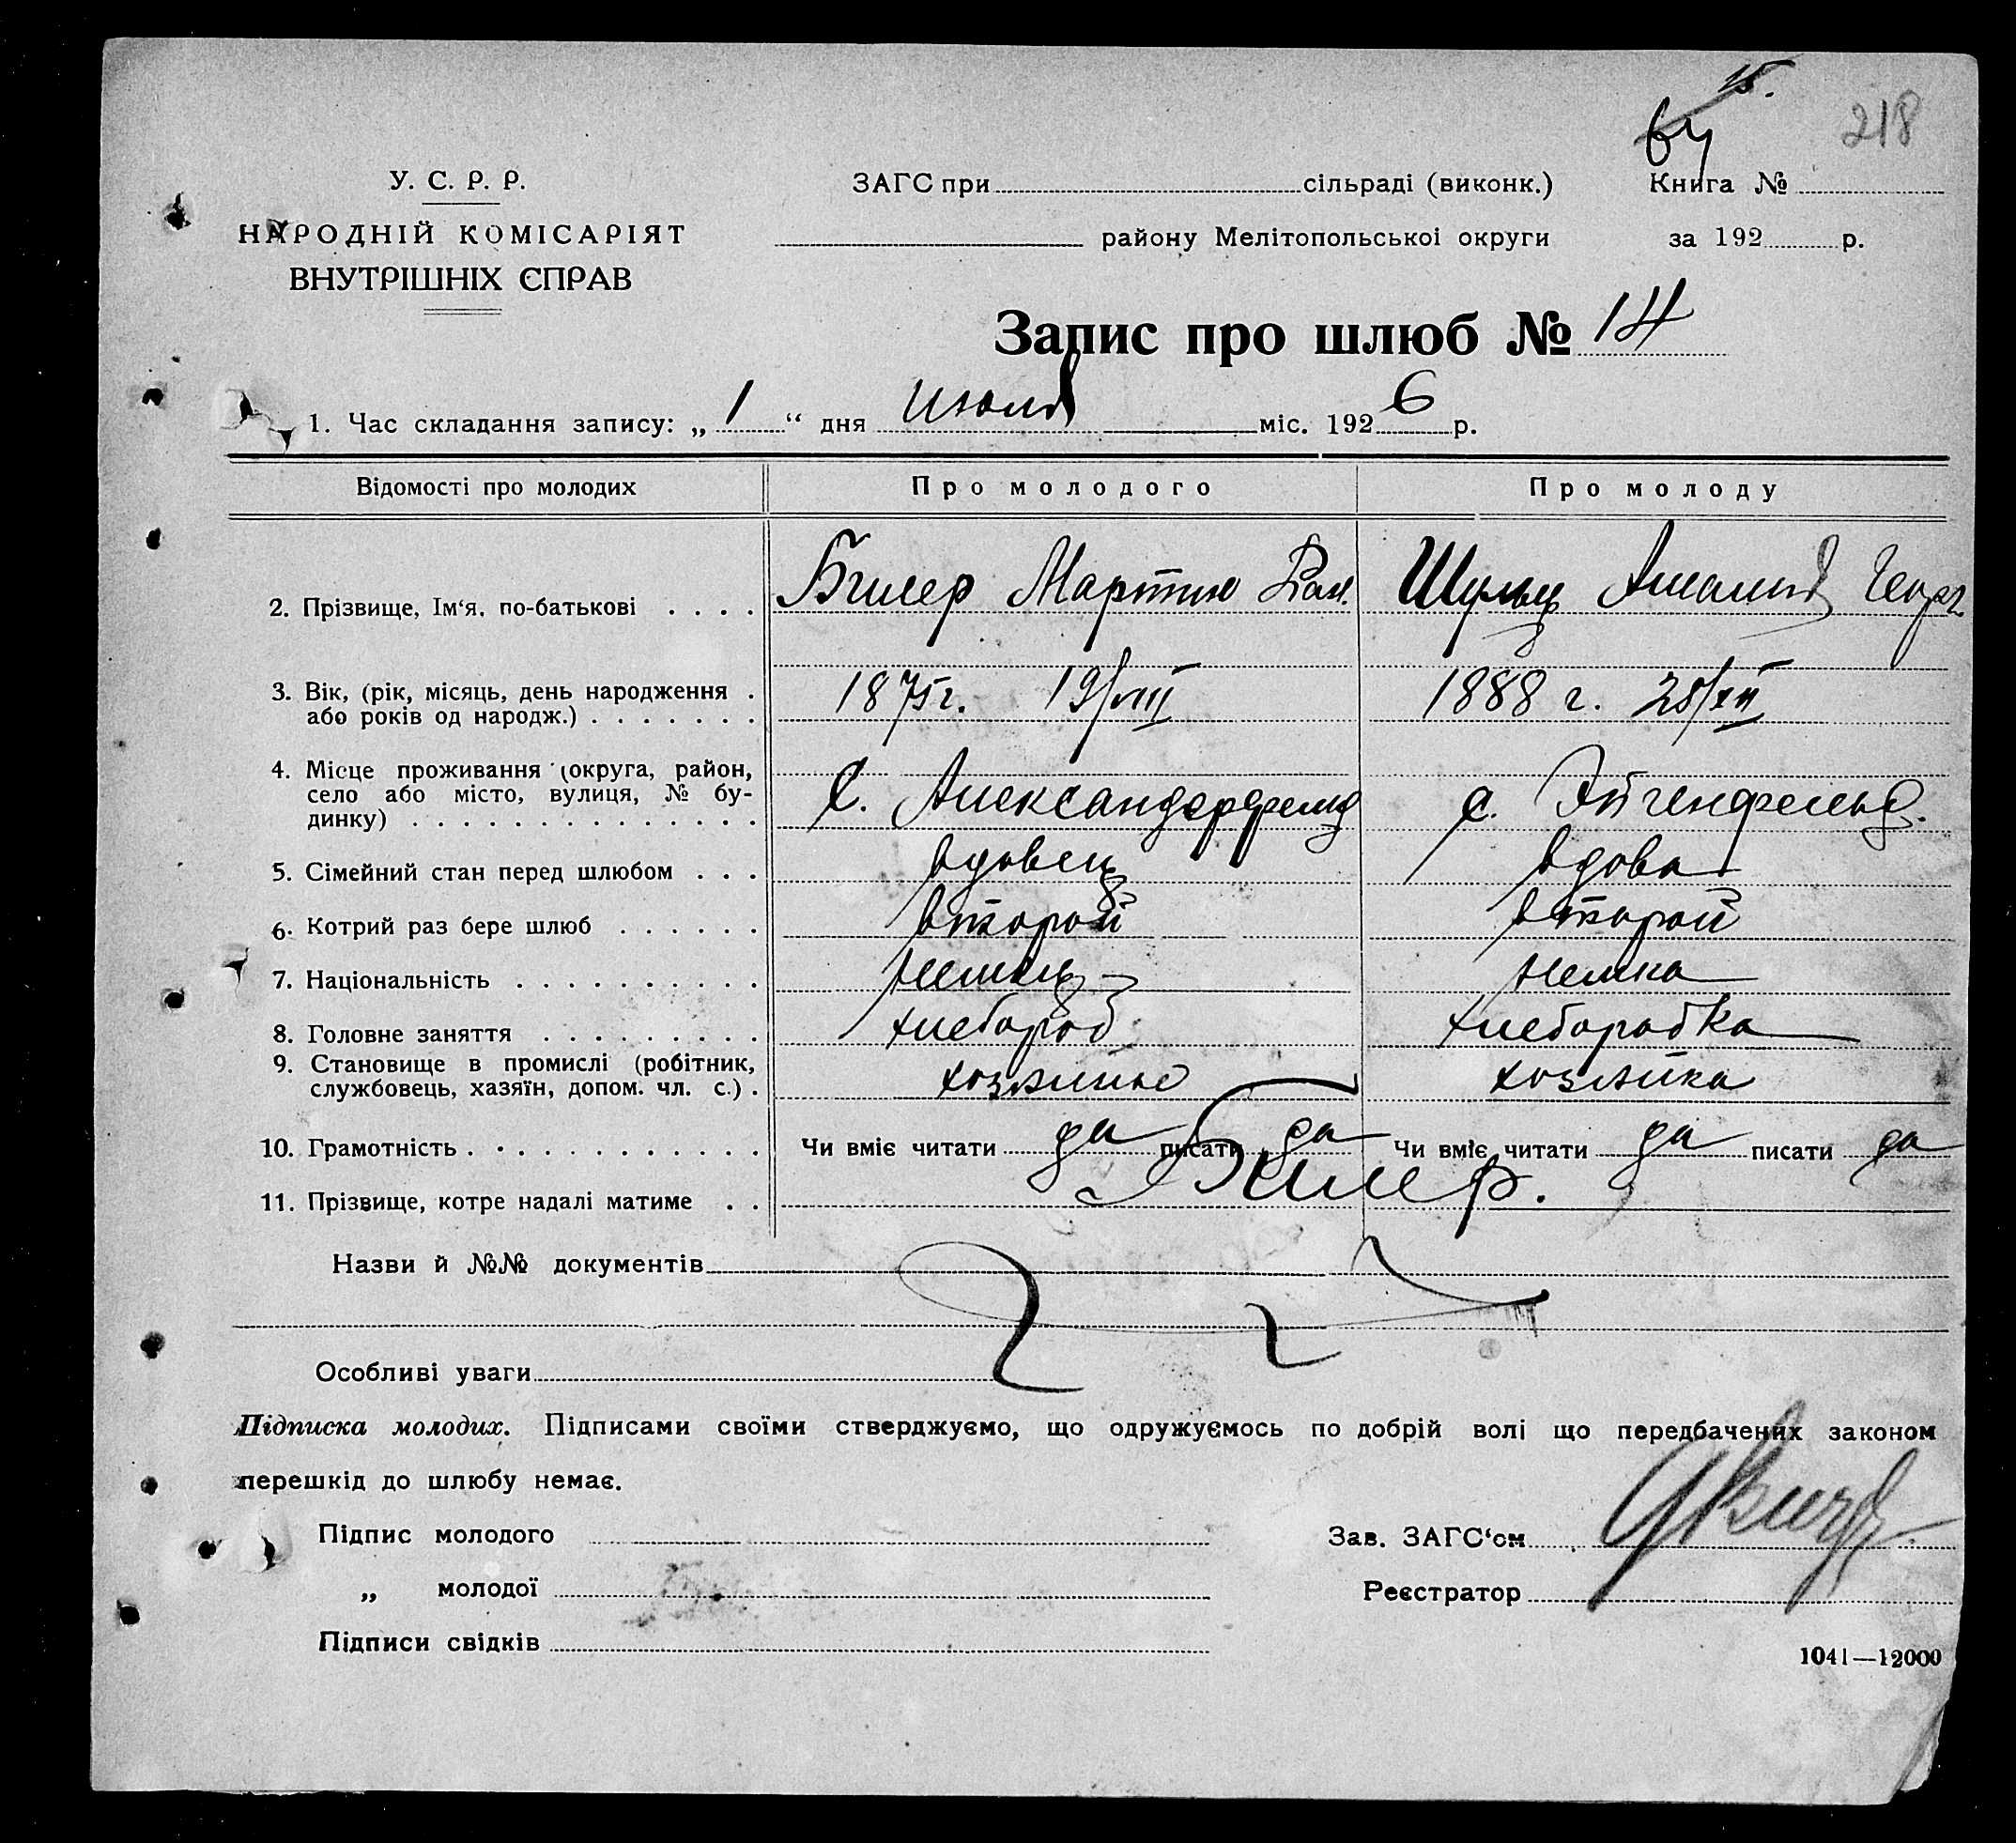 218
У. С. Р. Р.
НАРОДНІЙ КОМІСАРІЯТ
ВНУТРІШНІХ СПРАВ
ЗАГС при сільраді (виконк.)
Книга №
району Мелітопольської округи
за 192 р.
Запис про шлюб № 14
1. Час складання запису: „ 1 “ дня июля міс. 1926 р.
Відомості про молодих
Про молодого
Про молоду
2. Прізвище, Ім‘я, по-батькові
Билер Мартин
Шульц Амалия Георг.
3. Вік, (рік, місяць, день народження
або років од народж.)
1875 г. 19/VIII
1888 г. 28/XII
4. Місце проживання (округа, район,
село або місто, вулиця, № бу-
динку)
с. Александерфельд
с. Эйгенфельд.
5. Сімейний стан перед шлюбом
вдовец
вдова
6. Котрий раз бере шлюб
второй
второй
7. Національність
немец
немка
8. Головне заняття
хлебороб
хлеборобка
9. Становище в промислі (робітник,
службовець, хазяїн, допом. чл. с.)
хозяин
хозяйка
10. Грамотність
Чи вміє читати да писати да
Чи вміє читати да писати да
11. Прізвище, котре надалі матиме
Билер.
Назви й №№ документів
Особливі уваги
Підписка молодих. Підписами своїми стверджуємо, що одружуємось по добрій волі що передбачених законом
перешкід до шлюбу немає.
Підпис молодого
Зав. ЗАГС‘ом
„ молодої
Реєстратор
Підписи свідків
1041—12000